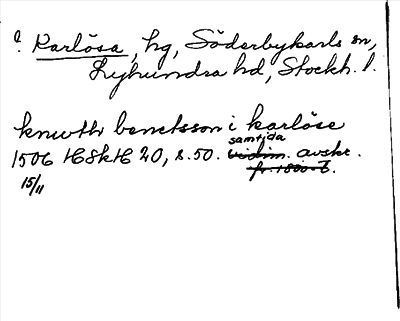 ? Karlösa, hg, Söderbykarls sn,
Lyhundra hd, Stockh. l.
knwth benctsson i karlöse
samtida
1506 HSkH 20, s. 50. vidim. avskr.
15/11 fr. 1500-t.